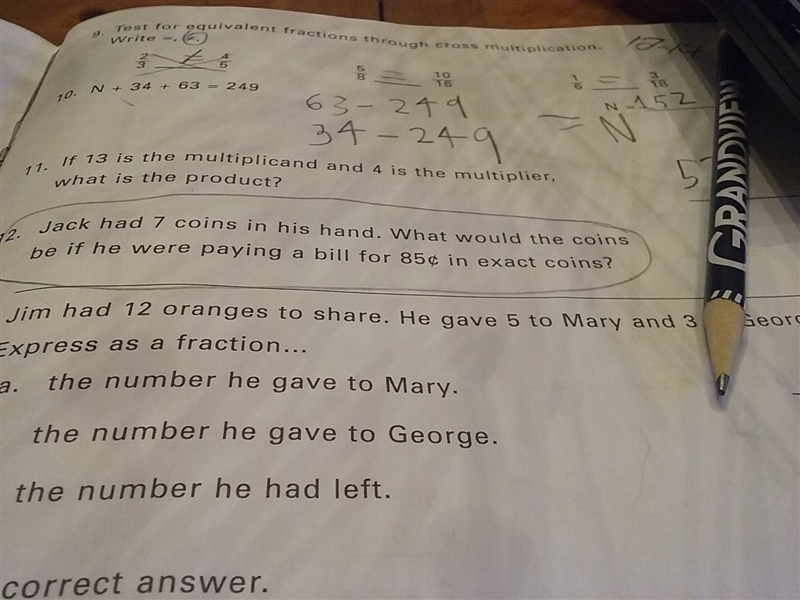 9. Test for equivalent fractions through cross multiplication.
Write =, ≠.
2/3 ≠ 4/5 5/8 = 10/16 1/6 = 3/18
10. N + 34 + 63 = 249
N = 152
63 - 249
34 - 249 = N
11. If 13 is the multiplicand and 4 is the multiplier,
what is the product?
12. Jack had 7 coins in his hand. What would the coins
be if he were paying a bill for 85¢ in exact coins?
Jim had 12 oranges to share. He gave 5 to Mary and 3 Georg
Express as a fraction...
a. the number he gave to Mary.
the number he gave to George.
the number he had left.
correct answer.
GRANDVIEW